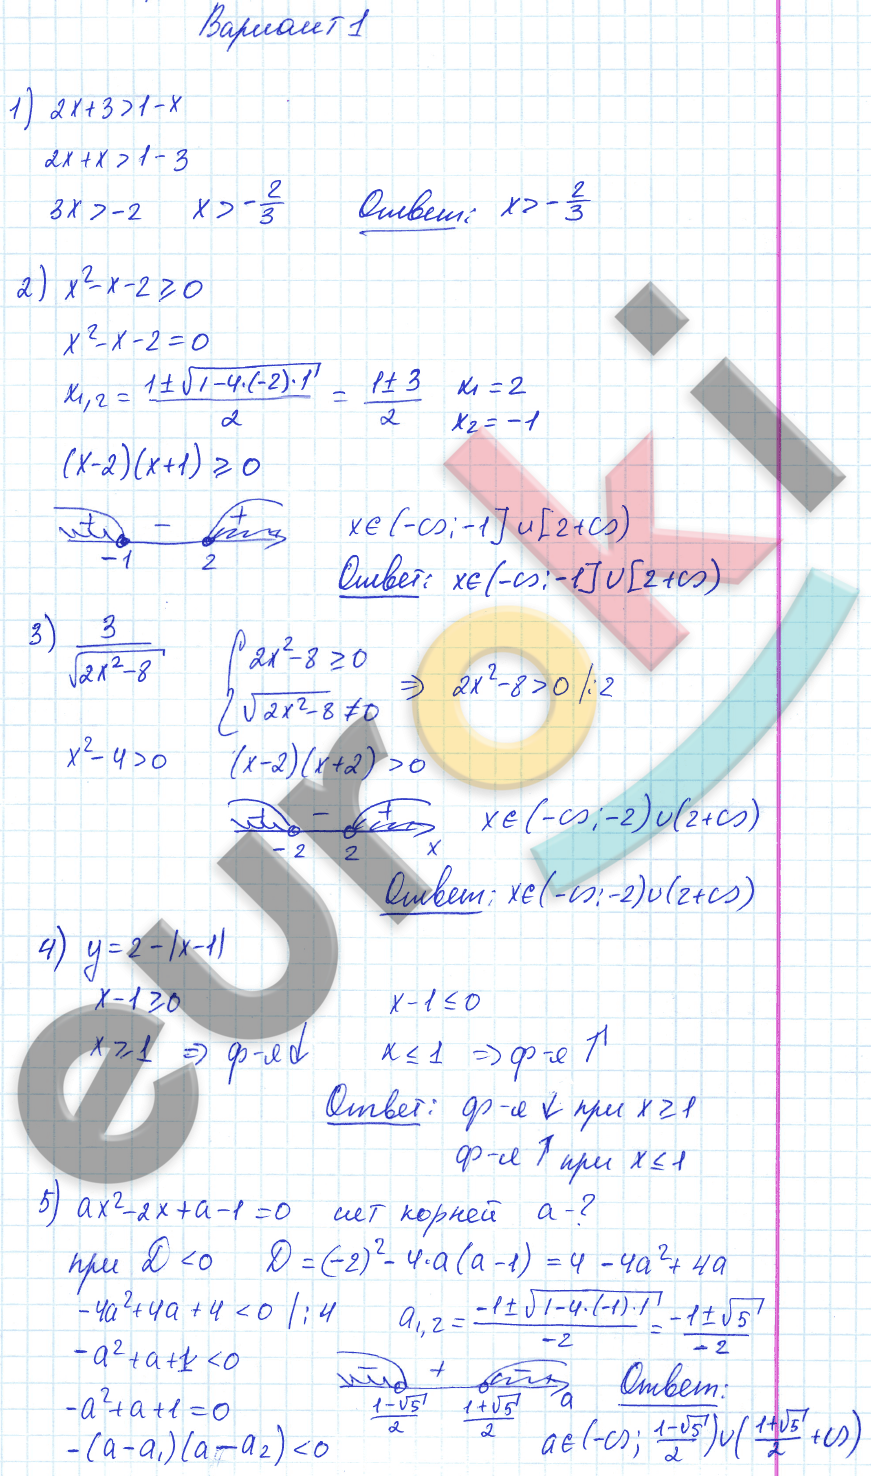 Вариант 1
1) 2x+3>1-x
2x+x>1-3
3x>-2 x>-2/3 Ответ: x>-2/3
2) x²-x-2≥0
x²-x-2=0
x₁,₂ = (1±√(1-4·(-2)·1))/2 = (1±3)/2 x₁=2
x₂=-1
(x-2)(x+1)≥0
+ - +
-1 2
x∈(-∞;-1]∪[2+∞)
Ответ: x∈(-∞;-1]∪[2+∞)
3) 3/√(2x²-8) { 2x²-8≥0
√(2x²-8)≠0 ⇒ 2x²-8>0 /:2
x²-4>0 (x-2)(x+2)>0
+ - +
-2 2 x
x∈(-∞;-2)∪(2+∞)
Ответ: x∈(-∞;-2)∪(2+∞)
4) y=2-|x-1|
x-1≥0 x-1≤0
x≥1 ⇒ ф-я↓ x≤1 ⇒ ф-я↑
Ответ: ф-я ↓ при x≥1
ф-я ↑ при x≤1
5) ax²-2x+a-1=0 нет корней a-?
при D<0 D=(-2)²-4·a(a-1)=4-4a²+4a
-4a²+4a+4<0 /:4 a₁,₂ = (-1±√(1-4·(-1)·1))/-2 = (-1±√5)/-2
-a²+a+1<0
-a²+a+1=0
-(a-a₁)(a-a₂)<0
- + -
(1-√5)/2 (1+√5)/2 a
Ответ:
a∈(-∞; (1-√5)/2)∪((1+√5)/2+∞)
euroki